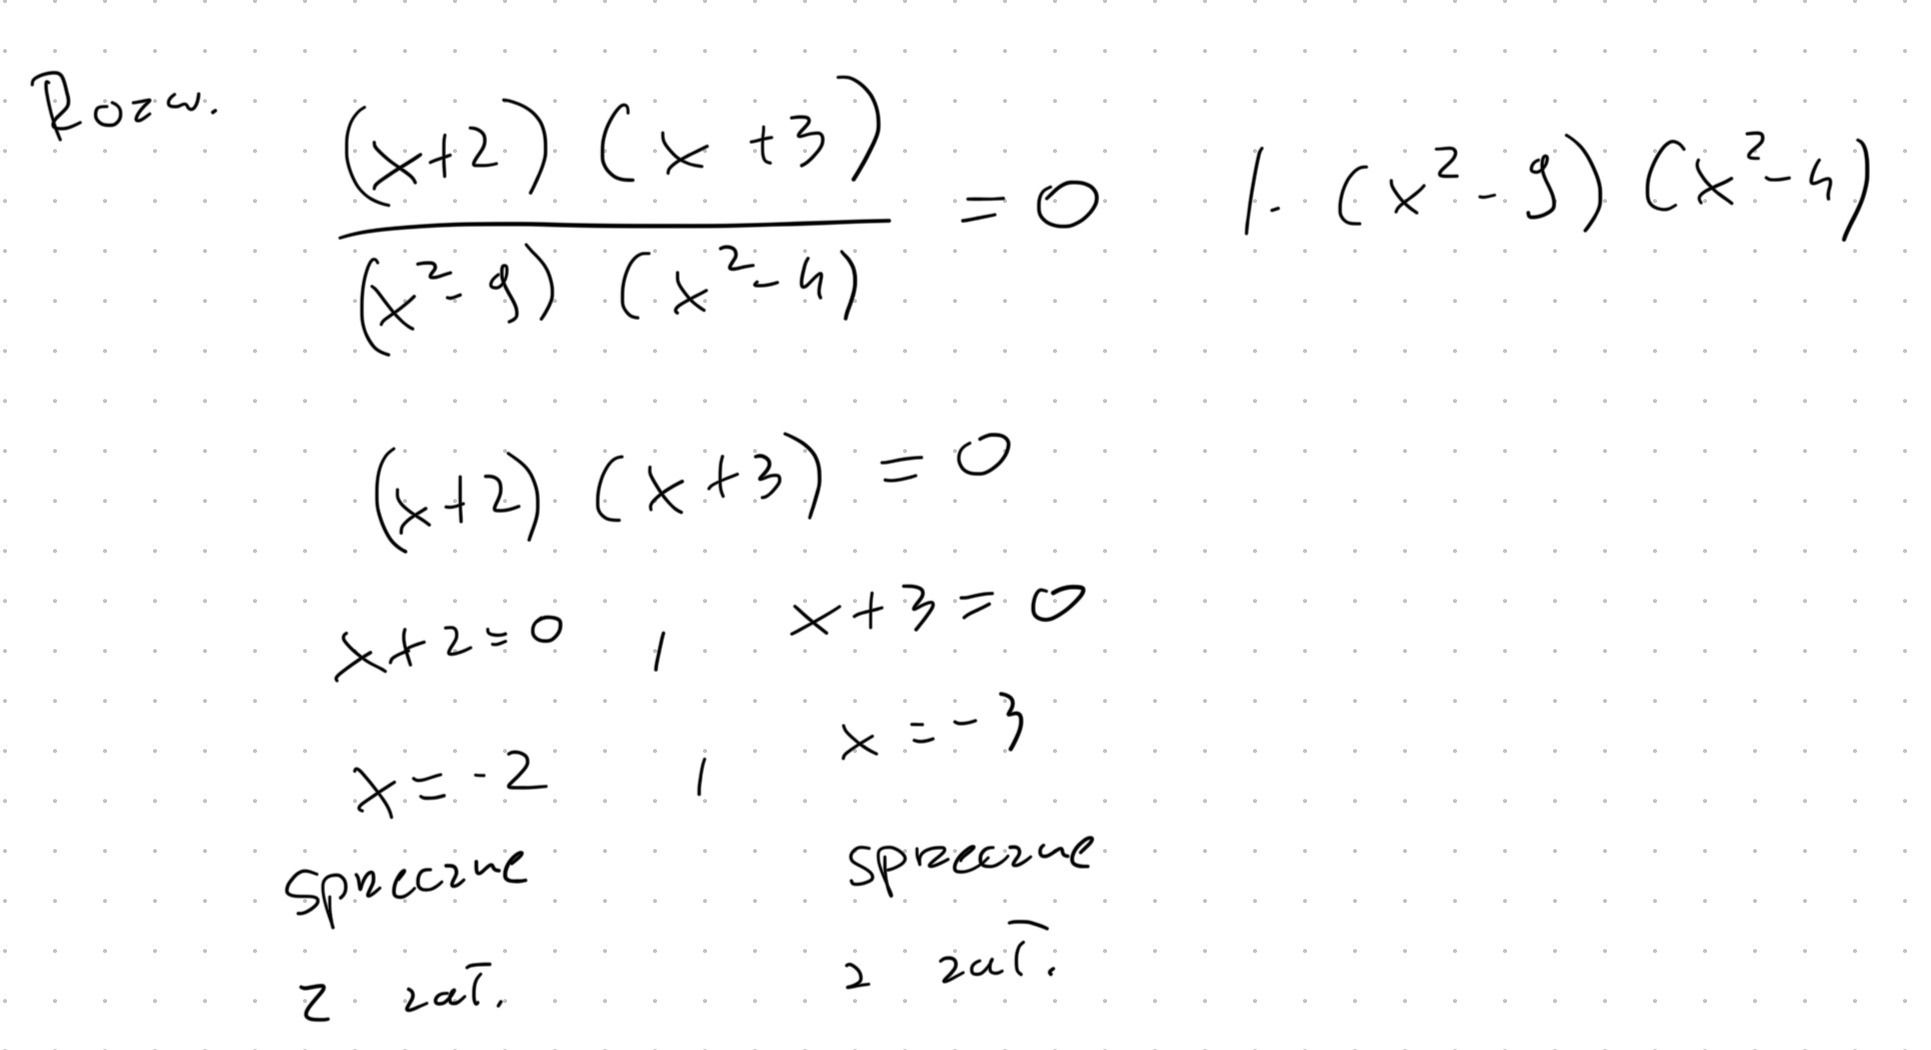 Rozw. (x+2) (x+3) / (x²-9) (x²-4) = 0 /· (x²-9) (x²-4)
(x+2) (x+3) = 0
x+2=0 , x+3=0
x=-2 , x=-3
sprzeczne sprzeczne
z zał. z zał.